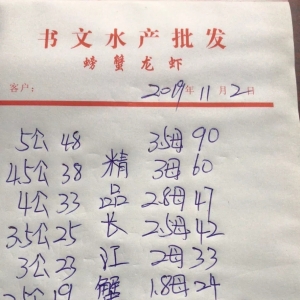 书文水产批发
螃蟹龙虾
客户： 2019年11月2日
5公 48 3.5母 90
4.5公 38 精 3母 60
4公 33 品 2.8母 47
3.5公 25 长 2.5母 42
3公 23 江 2母 33
2.5公 19 蟹 1.8母 24